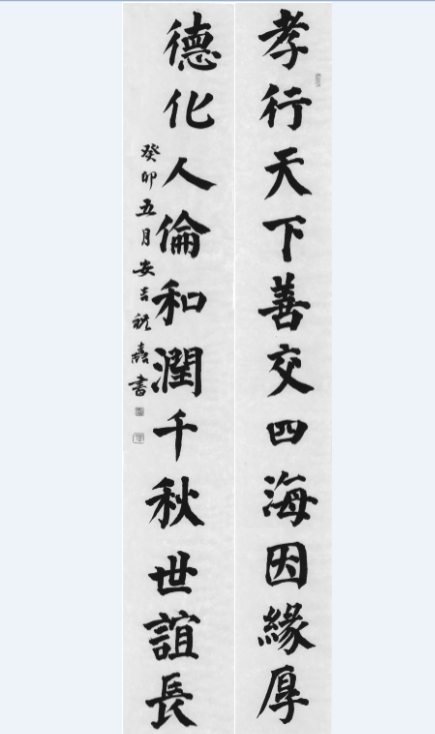 孝行天下善交四海因緣厚
德化人倫和潤千秋世誼長
癸卯五月安吉
書